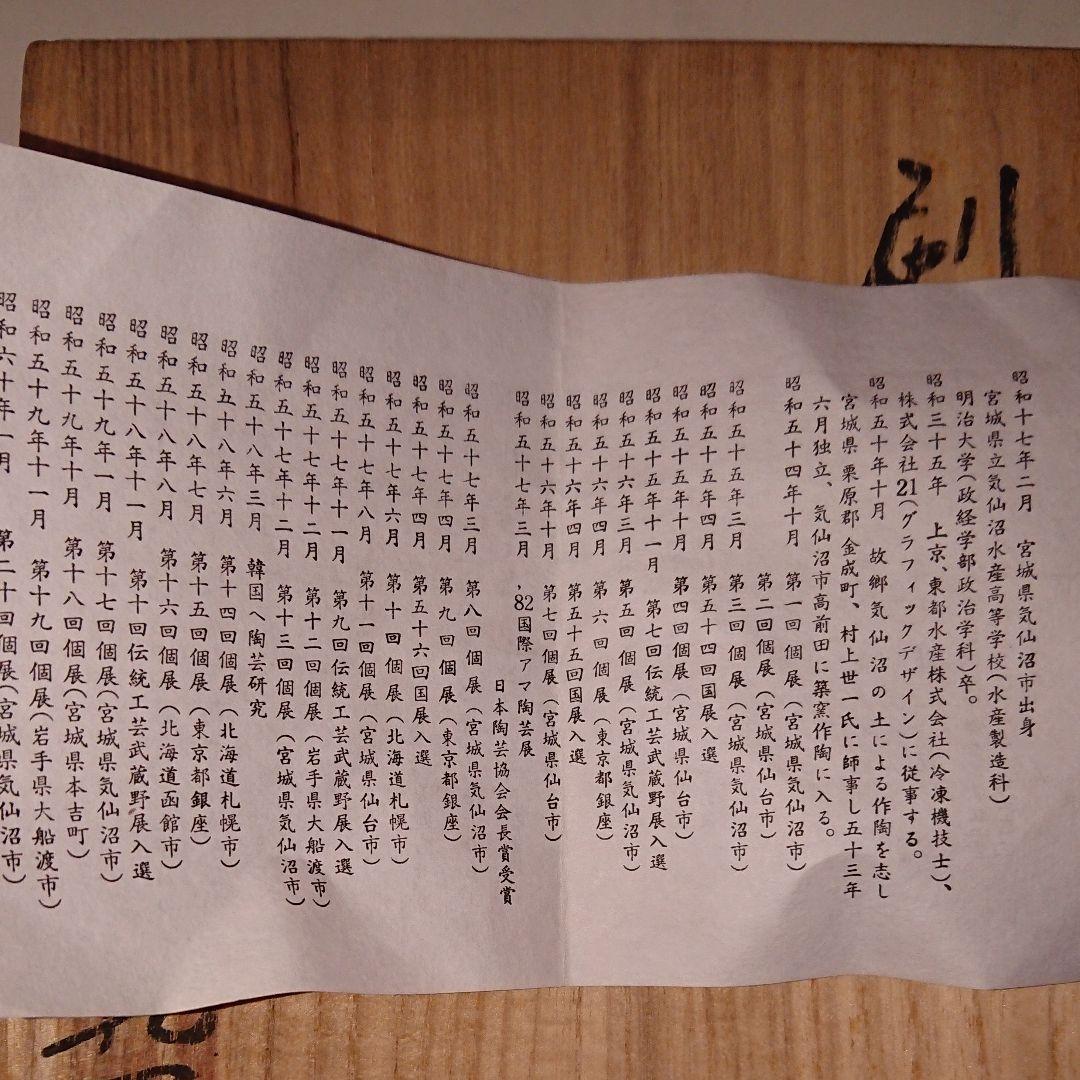 昭和十七年二月　宮城県気仙沼市出身
宮城県立気仙沼水産高等学校(水産製造科)
明治大学(政経学部政治学科)卒。
昭和三十五年　上京、東都水産株式会社(冷凍機技士)、
株式会社21(グラフィックデザイン)に従事する。
昭和五十年十月　故郷気仙沼の土による作陶を志し
宮城県栗原郡金成町、村上世一氏に師事し五十三年
六月独立、気仙沼市高前田に築窯作陶に入る。
昭和五十四年十月　第一回個展(宮城県気仙沼市)
第二回個展(宮城県仙台市)
昭和五十五年三月　第三回個展(宮城県気仙沼市)
昭和五十五年四月　第五十四回国展入選
昭和五十五年十月　第四回個展(宮城県仙台市)
昭和五十五年十一月　第七回伝統工芸武蔵野展入選
昭和五十六年二月　第五回個展(宮城県気仙沼市)
昭和五十六年四月　第六回個展(東京都銀座)
昭和五十六年四月　第五十五回国展入選
昭和五十六年十月　第七回個展(宮城県仙台市)
昭和五十七年三月　'82国際アマ陶芸展
日本陶芸協会会長賞受賞
昭和五十七年三月　第八回個展(宮城県気仙沼市)
昭和五十七年四月　第九回個展(東京都銀座)
昭和五十七年四月　第五十六回国展入選
昭和五十七年六月　第十回個展(北海道札幌市)
昭和五十七年八月　第十一回個展(宮城県仙台市)
昭和五十七年十一月　第九回伝統工芸武蔵野展入選
昭和五十七年十二月　第十二回個展(岩手県大船渡市)
昭和五十七年十二月　第十三回個展(宮城県気仙沼市)
昭和五十八年三月　韓国へ陶芸研究
昭和五十八年六月　第十四回個展(北海道札幌市)
昭和五十八年七月　第十五回個展(東京都銀座)
昭和五十八年八月　第十六回個展(北海道函館市)
昭和五十八年十一月　第十回伝統工芸武蔵野展入選
昭和五十九年一月　第十七回個展(宮城県気仙沼市)
昭和五十九年十月　第十八回個展(宮城県本吉町)
昭和五十九年十一月　第十九回個展(岩手県大船渡市)
昭和六十年一月　第二十回個展(宮城県気仙沼市)